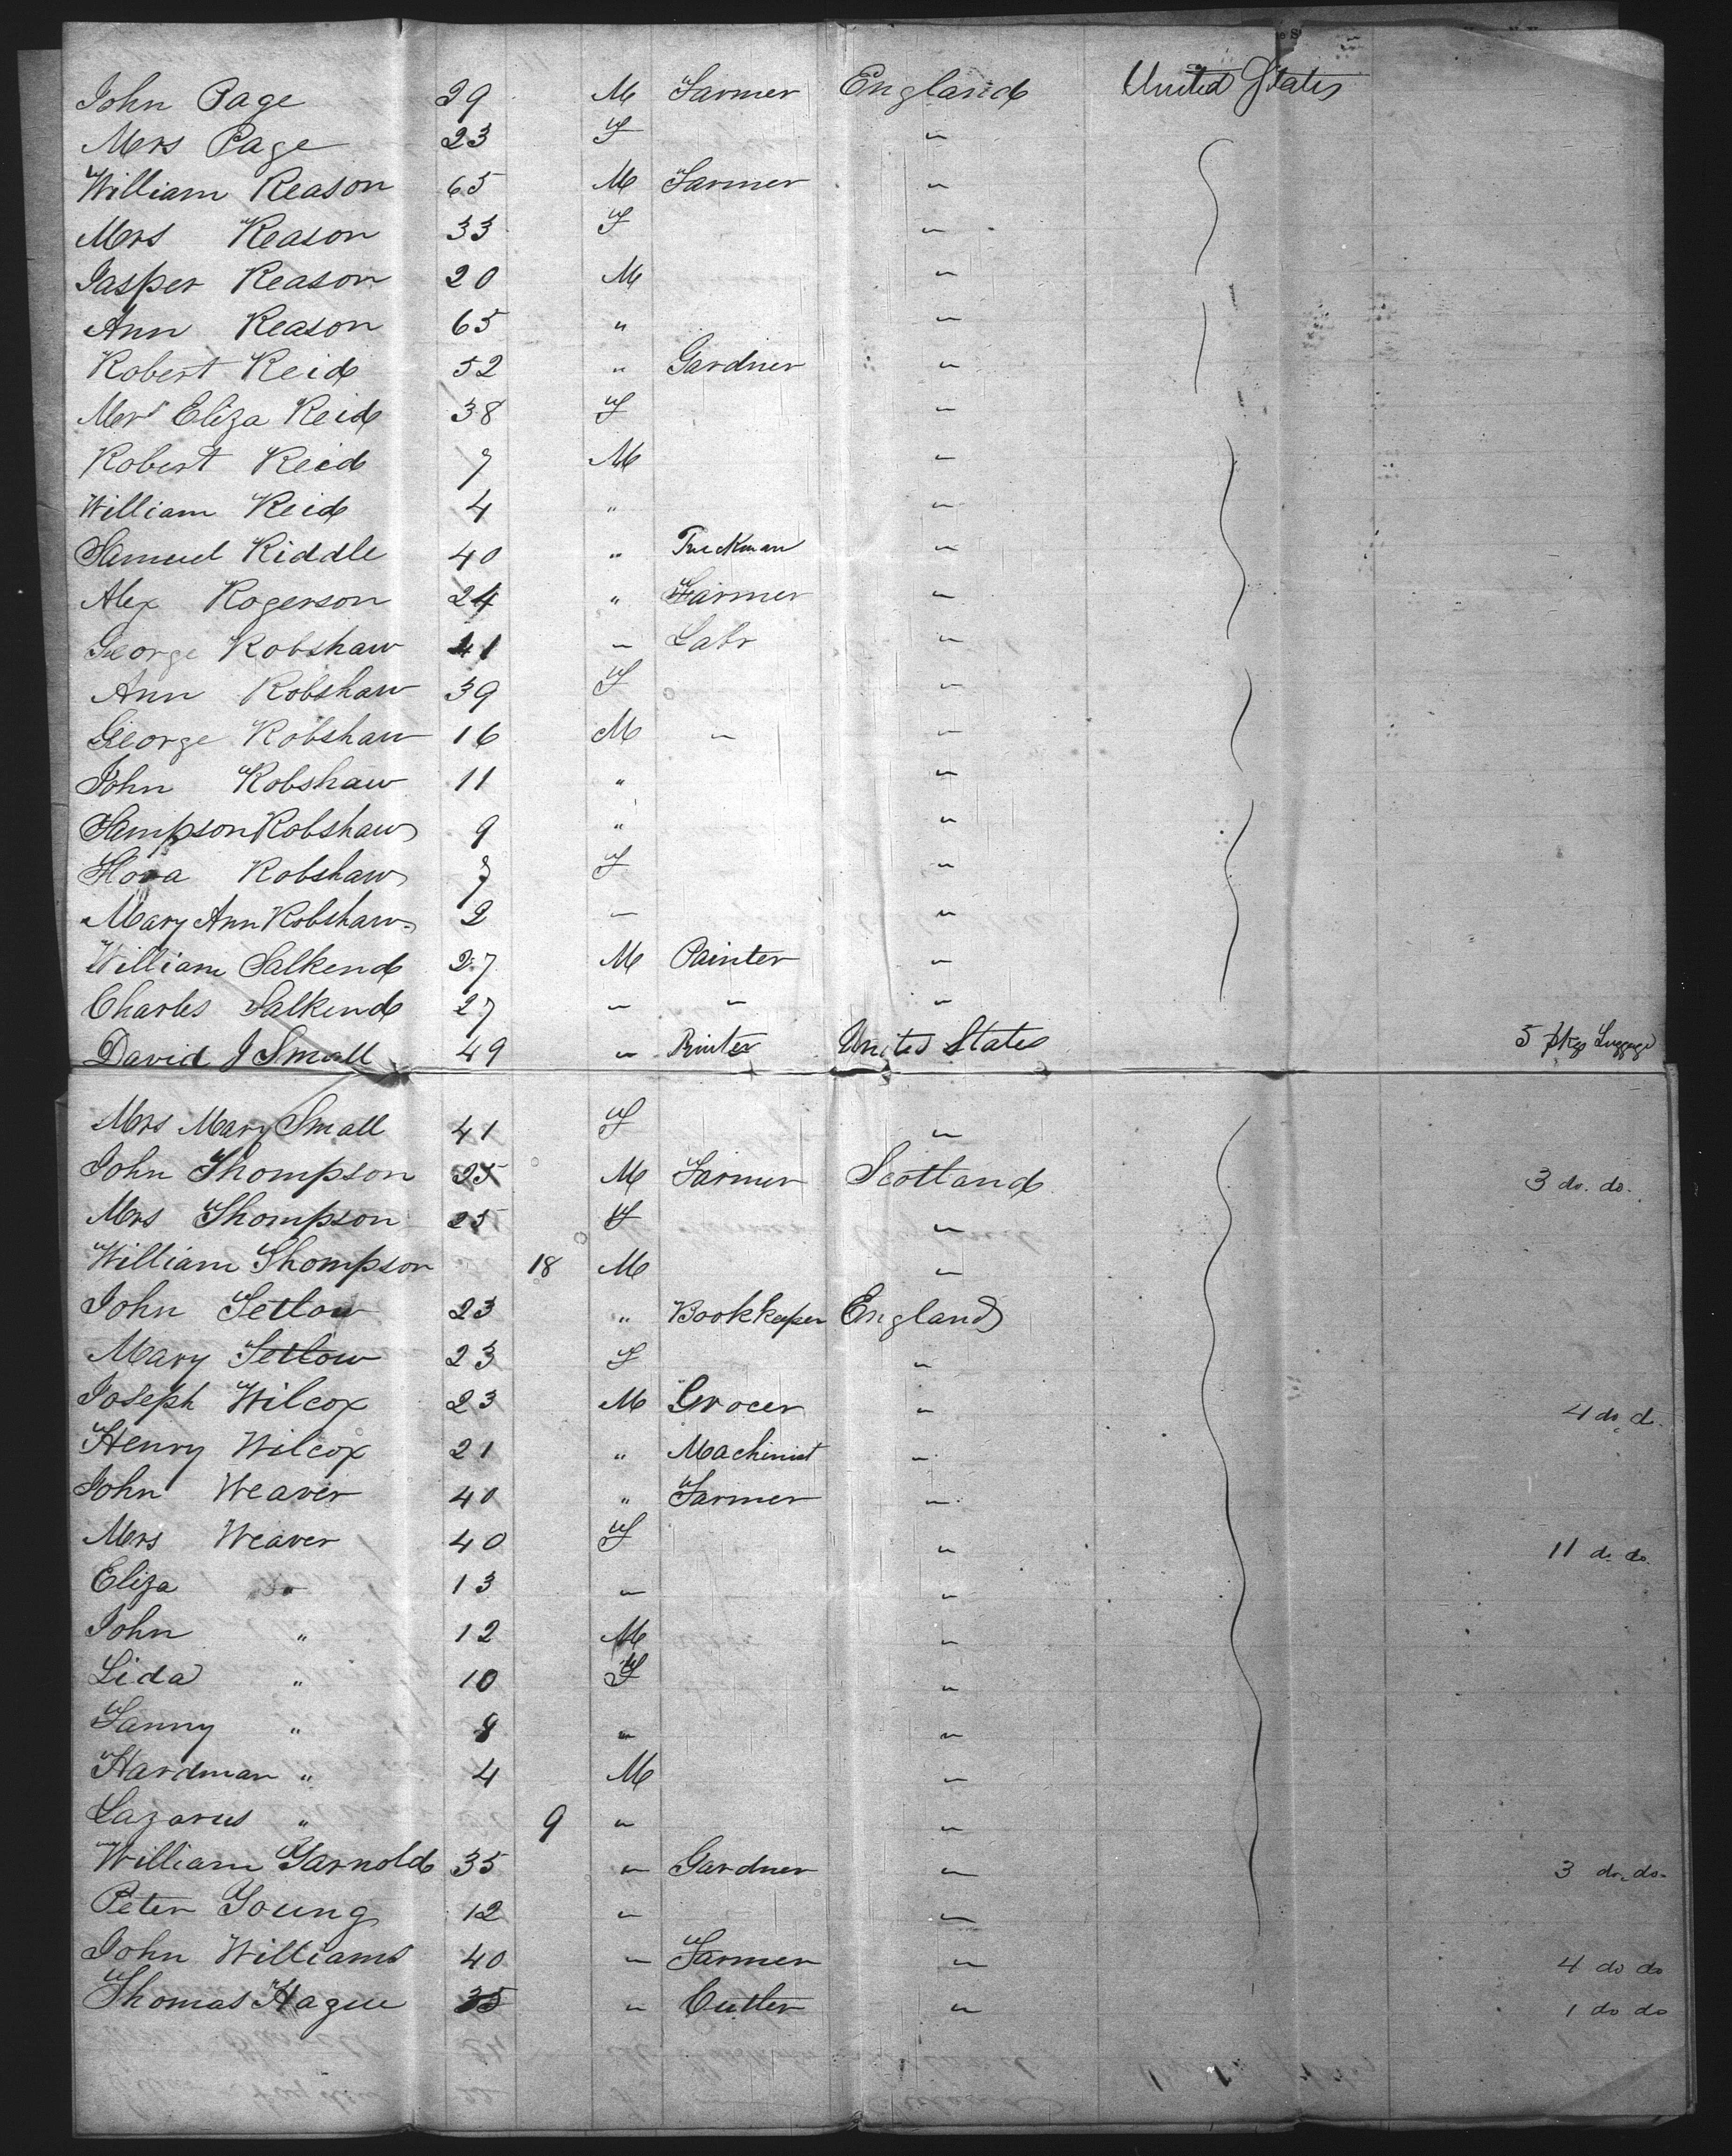 John Page 29 M Farmer England United States
Mrs Page 23 F "
William Reason 65 M Farmer "
Mrs Reason 33 F "
Jasper Reason 20 M "
Ann Reason 65 " "
Robert Reid 52 " Gardner "
Mrs Eliza Reid 38 F "
Robert Reid 7 M "
William Reid 4 " "
Samuel Riddle 40 " Truckman "
Alex Rogerson 24 " Farmer "
George Robshaw 41 " Labr "
Ann Robshaw 39 F "
George Robshaw 16 M " "
John Robshaw 11 " "
Sampson Robshaw 9 " "
Flora Robshaw 7 F "
Mary Ann Robshaw 2 " "
William Salkend 27 M Painter "
Charles Salkend 27 " " "
David J Small 49 " Printer United States 5 pkgs Luggage
Mrs Mary Small 41 F "
John Thompson 25 M Farmer Scotland 3 do. do.
Mrs Thompson 25 F "
William Thompson 18 M "
John Tetlow 23 " Bookkeeper England
Mary Tetlow 23 F "
Joseph Wilcox 23 M Grocer " 4 do do.
Henry Wilcox 21 " Machinist "
John Weaver 40 " Farmer "
Mrs Weaver 40 F " 11 do do.
Eliza " 13 " "
John " 12 M "
Lida " 10 F "
Fanny " 8 " "
Hardman " 4 M "
Lazarus " 9 " "
William Yarnold 35 " Gardner " 3 do do.
Peter Young 12 " "
John Williams 40 " Farmer " 4 do do
Thomas Hague 35 " Cutler " 1 do do